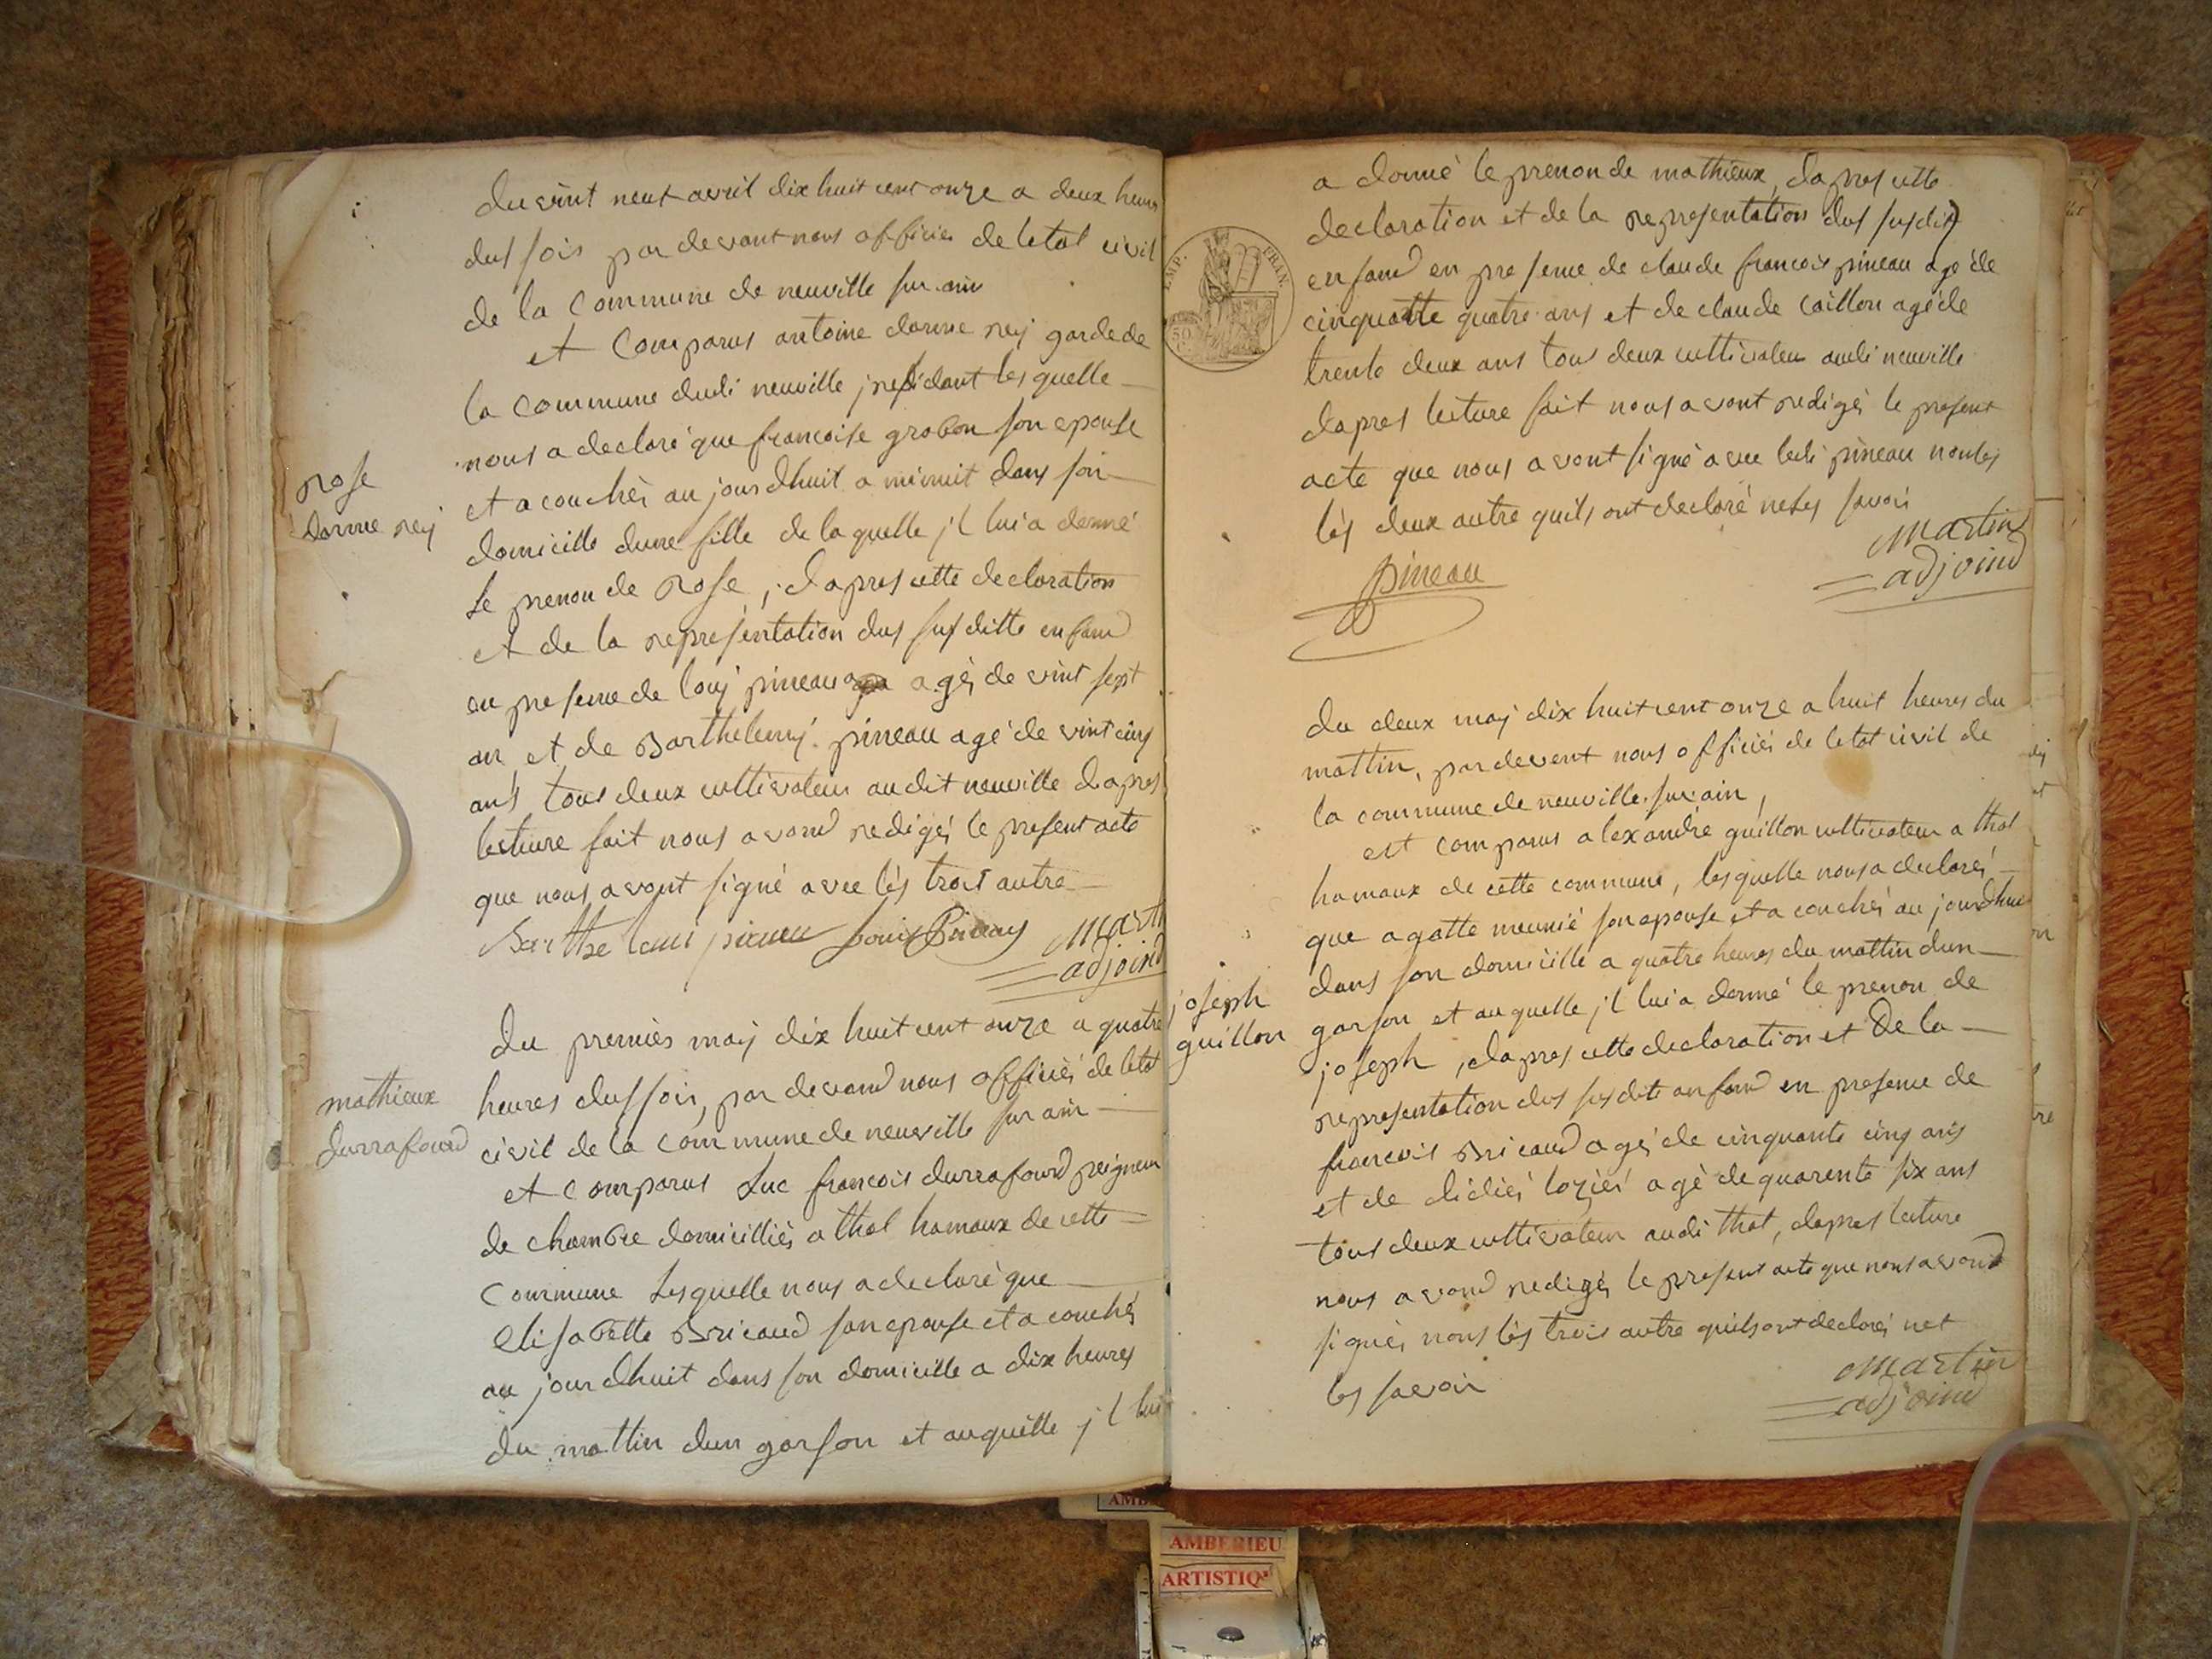 du vint neut avril dix huit cent onze a deux heures
dus soir par devant nous officier de letat civil
de la commune de neuville sur ain
et comparus antoine darme rey garde de
la commune dudi neuville j residant lesquelle
nous a declaré que francoise grobon son epouse
et a couchés au jourdhuit a minuit dans son
rose
darme rey
domicille dune fille de laquelle jl lui a donné
le prenon de rose, dapres cette declaration
et de la representation dus susditte enfand
en presence de louj pineau agés de vint sept
an et de Barthelemj pineau agé de vint cinq
ans tous deux cultivateur audit neuville dapres
lecture fait nous avond redigés le present acte
que nous avont signé avec lés trois autre
Barthelemi pineau Louis Pineau Marti
adjoind
mathieux
durrafourd
du premiés maj dix huit cent onze a quatre
heures dus soir, par devand nous officiés de letat
civil de la commune de neuville sur ain
et comparus Luc francois durrafourd peigneur
de chambre domicilliés a thol hamaux de cette
commune lesquelle nous a declaré que
elisabette Bricaud son epouse et a couchés
au jourdhuit dans son domicille a dix heures
du mattin dun garson et auquelle jl lui
a donné le prenon de mathieux, dapres cette
declaration et de la representation dus susdit
enfand en presence de claude francois pineau agé de
cinquatte quatre ans et de claude caillon agé de
trente deux ans tous deux cultivateur audi neuville
dapres lecture fait nous avont redigés le present
acte que nous avont signé avec ledi pineau nonles
lés deux autre quils ont declaré neles savoir
Martin
adjoind
Pineau
EMP. FRAN.
50
C.
joseph
guillon
du deux maj dix huit cent onze a huit heures du
mattin, par devent nous officiés de letat civil de
la commune de neuville sur ain,
est comparus alexandre guillon cultivateur a thol
hamaux de cette commune, lesquelle nous a declarés
que agatte meunié son epouse et a couchés au jourdhui
dans son domicille a quatre heures du mattin dun
garson et auquelle jl lui a donné le prenon de
joseph, dapres cette declaration et de la
representation dus susdite anfand en presence de
francois Bricaud agé de cinquante cinq ans
et de didiés loziés agé de quarente six ans
tous deux cultivateur audi thol, dapres lecture
nous avond redigés le present acte que nous avond
signés nons lés trois autre quils ont declarés net
les savoir
Martin
adjoind
AMBERIEU
ARTISTIQ